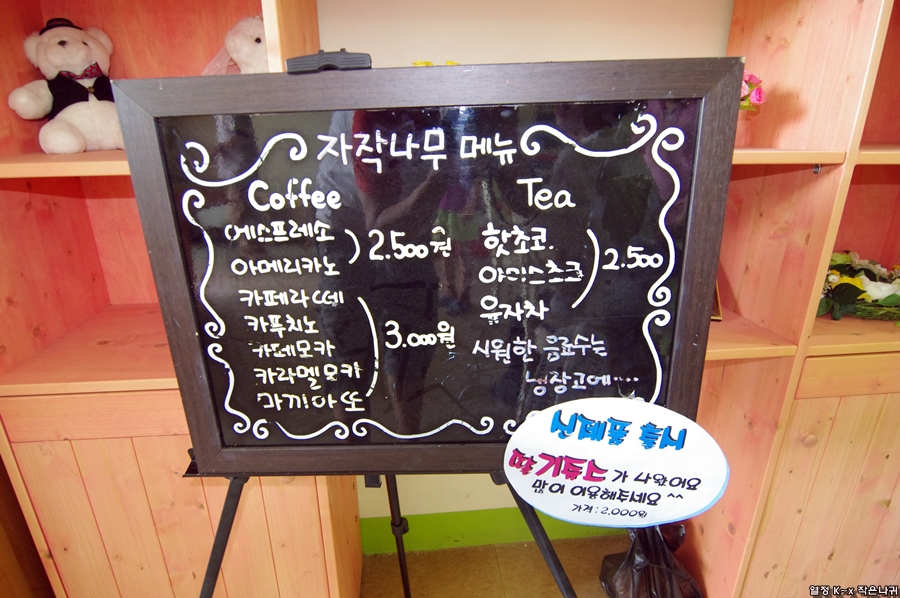 자작나무 메뉴
Coffee
에스프레소
아메리카노
2.500원
카페라떼
카푸치노
카페모카
카라멜모카
마끼아또
3.000원
Tea
핫초코.
아이스초코
유자차
2.500
시원한 음료수는
냉장고에....
신제품 출시
딸기쥬스가 나왔어요
많이 이용해주세요 ^^
가격:2,000원
열정 K-x 작은나귀